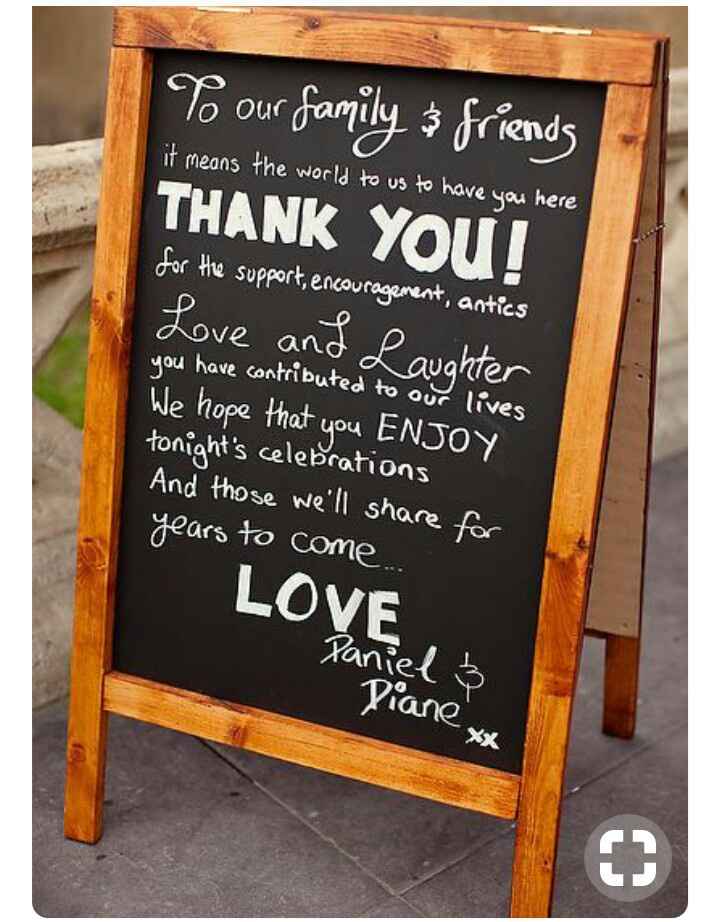 To our family & friends
it means the world to us to have you here
THANK YOU!
for the support, encouragement, antics
Love and Laughter
you have contributed to our lives
We hope that you ENJOY
tonight's celebrations
And those we'll share for
years to come...
LOVE
Daniel &
Diane xx